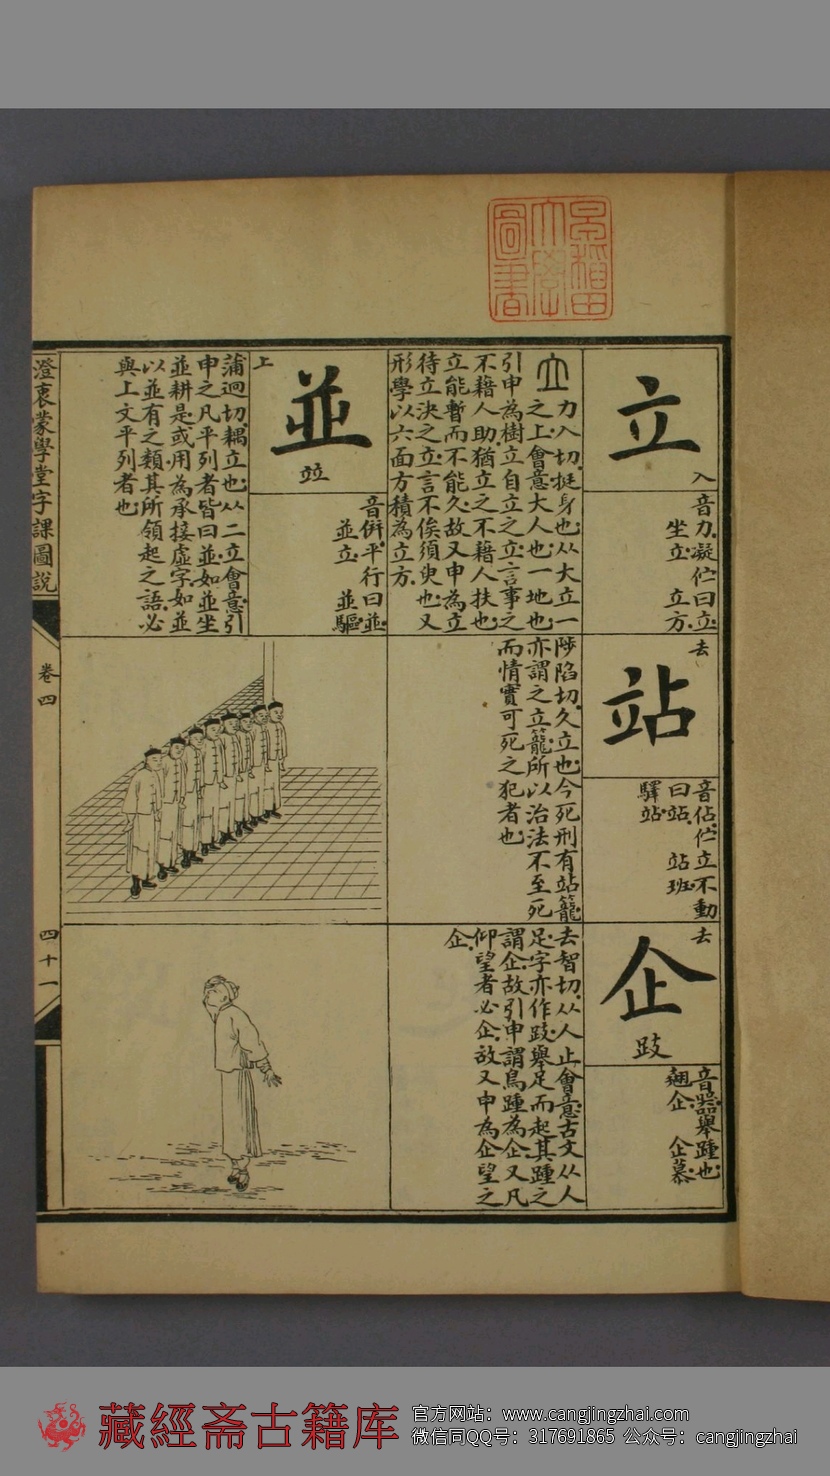 早稲田
大學
圖書
立
入
音力.凝伫曰立.
坐立　立方.
𡗓力入切.挺身也.从大立一
之上.會意.大人也.一地也.
引申為樹立自立之立.言事之
不藉人助.猶立之不藉人扶也.
立能暫而不能久.故又申為立
待立決之立.言不俟須臾也.又
形學以六面方積為立方.
並
竝
上
音倂.平行曰並.
並立　並驅.
蒲迥切.耦立也.从二立會意.引
申之凡平列者皆曰並.如並坐
並耕是.或用為承接虛字.如並
以並有之類.其所領起之語.必
與上文平列者也.
站
去
音佔.伫立不動
曰站.　站班.
驛站.
陟陷切.久立也.今死刑有站籠.
亦謂之立籠.所以治法不至死
而情實可死之犯者也.
企
跂
去
音器.舉踵也.
翹企　企慕.
去智切.从人止會意.古文从人
足.字亦作跂.舉足而起其踵之
謂企.故引申謂鳥踵為企.又凡
仰望者必企.故又申為企望之
企.
澄衷蒙學堂字課圖說
卷四
四十一
藏經斋古籍库
官方网站：www.cangjingzhai.com
微信同QQ号：317691865 公众号：cangjingzhai